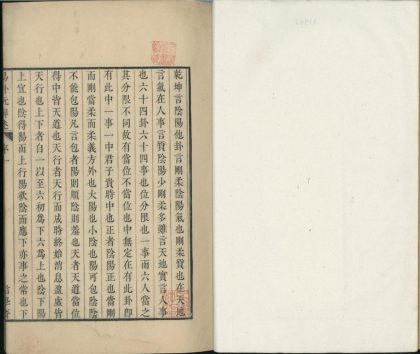 乾坤言陰陽他卦言剛柔陰陽氣也剛柔質也在天地
言氣在人事言質陰陽少剛柔多雖言天地實言人事
也六十四卦六十四事也位分限也一事而六人當之
其分限不同故有當位不當位也中無定在有此卦即
有此中一事一中君子貴時中也正者陰陽正也當剛
而剛當柔而柔義方外也大陽也小陰也陽可包陰陰
不能包陽凡言包者陽則順陰則羞也天者天道當位
得中皆天道也天行者天行而成時終始消息盈虛皆
天行也上下者自一以至六初為下六為上也陰下陽
上宜也陰得陽而上行陽欲陰而應下亦事之常也下